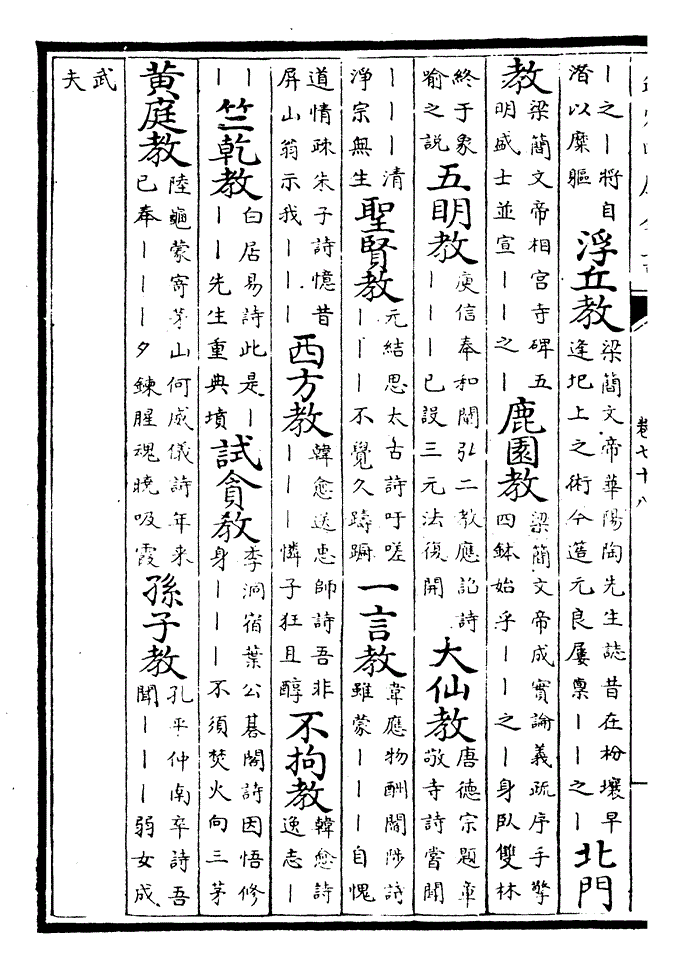 卷七十八
｜之｜將自潛以糜軀 浮丘教 梁簡文帝華陽陶先生誌昔在枌壤早逢圯上之術今造元良屢稟｜｜之｜ 北門
教 梁簡文帝相宮寺碑五明盛士並宣｜｜之｜ 鹿園教 梁簡文帝成實論義疏序手擎四鉢始乎｜｜之｜身臥雙林
終于象喻之說 五明教 庾信奉和闡弘二教應詔詩｜｜｜已設三元法復開 大仙教 唐德宗題章敬寺詩嘗聞
｜｜｜清淨宗無生 聖賢教 元結思太古詩吁嗟｜｜｜不覺久躊躕 一言教 韋應物酬閻陟詩雖蒙｜｜｜自愧
道情疎朱子詩憶昔屏山翁示我｜｜｜ 西方教 韓愈送惠師詩吾非｜｜｜憐子狂且醇 不拘教 韓愈詩逸志｜
｜｜ 竺乾教 白居易詩此是｜｜｜先生重典墳 試貪教 李洞宿葉公棊閣詩因悟修身｜｜｜不須焚火向三茅
黄庭教 陸龜蒙寄茅山何威儀詩年来已奉｜｜｜夕鍊腥魂曉吸霞 孫子教 孔平仲南卒詩吾聞｜｜｜弱女成
武夫